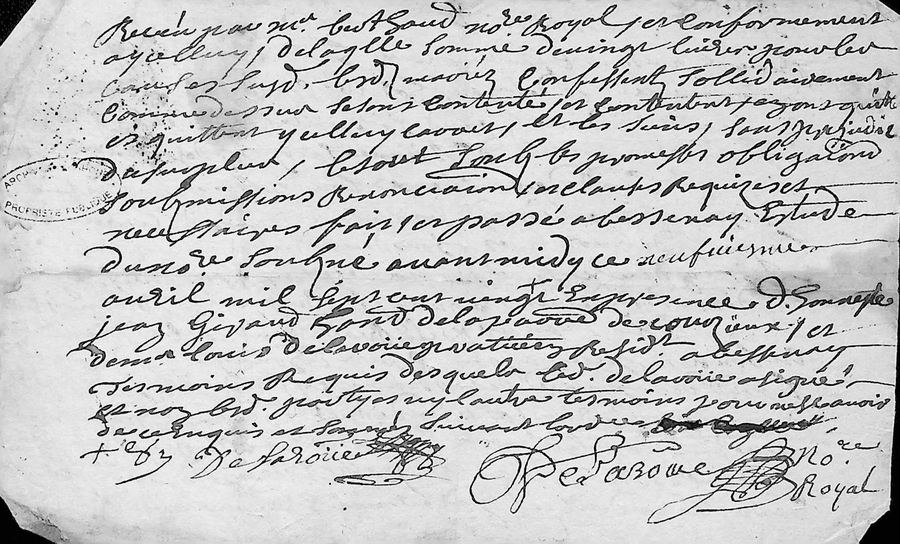 Receu par mr berthaud nore Royal et Conformement
a ycelluy, de laqlle somme de vingt livres pour les
causes susd. lesd. mariez Confessent sollidairement
comme dessus se sont contenté, et contentent, et quitté
et quittent ycelluy lavoie, et les siens, sans prejudice
du surplus, le tout soubs les promesses obligations
soubmissions Renonciations et clauses Requises et
necessaires fait et passé a bessenay Estude
du nore soubsné avant midy ce neufuiesme
avril mil sept cent vingt En presence d. honneste
jean Giraud de la parroisse de et
de mr Louis delavoue praticien Residt a bessenay
tesmoins Requis desquels led. delavoue a signé
et non lesd. partyes ny lautre tesmoins pour ne scavoir
de ce enquis et sommés suivant lord
Delavoüe
Delavoue Nore
Royal
ARCH
PROPRIETE PUBLIQUE